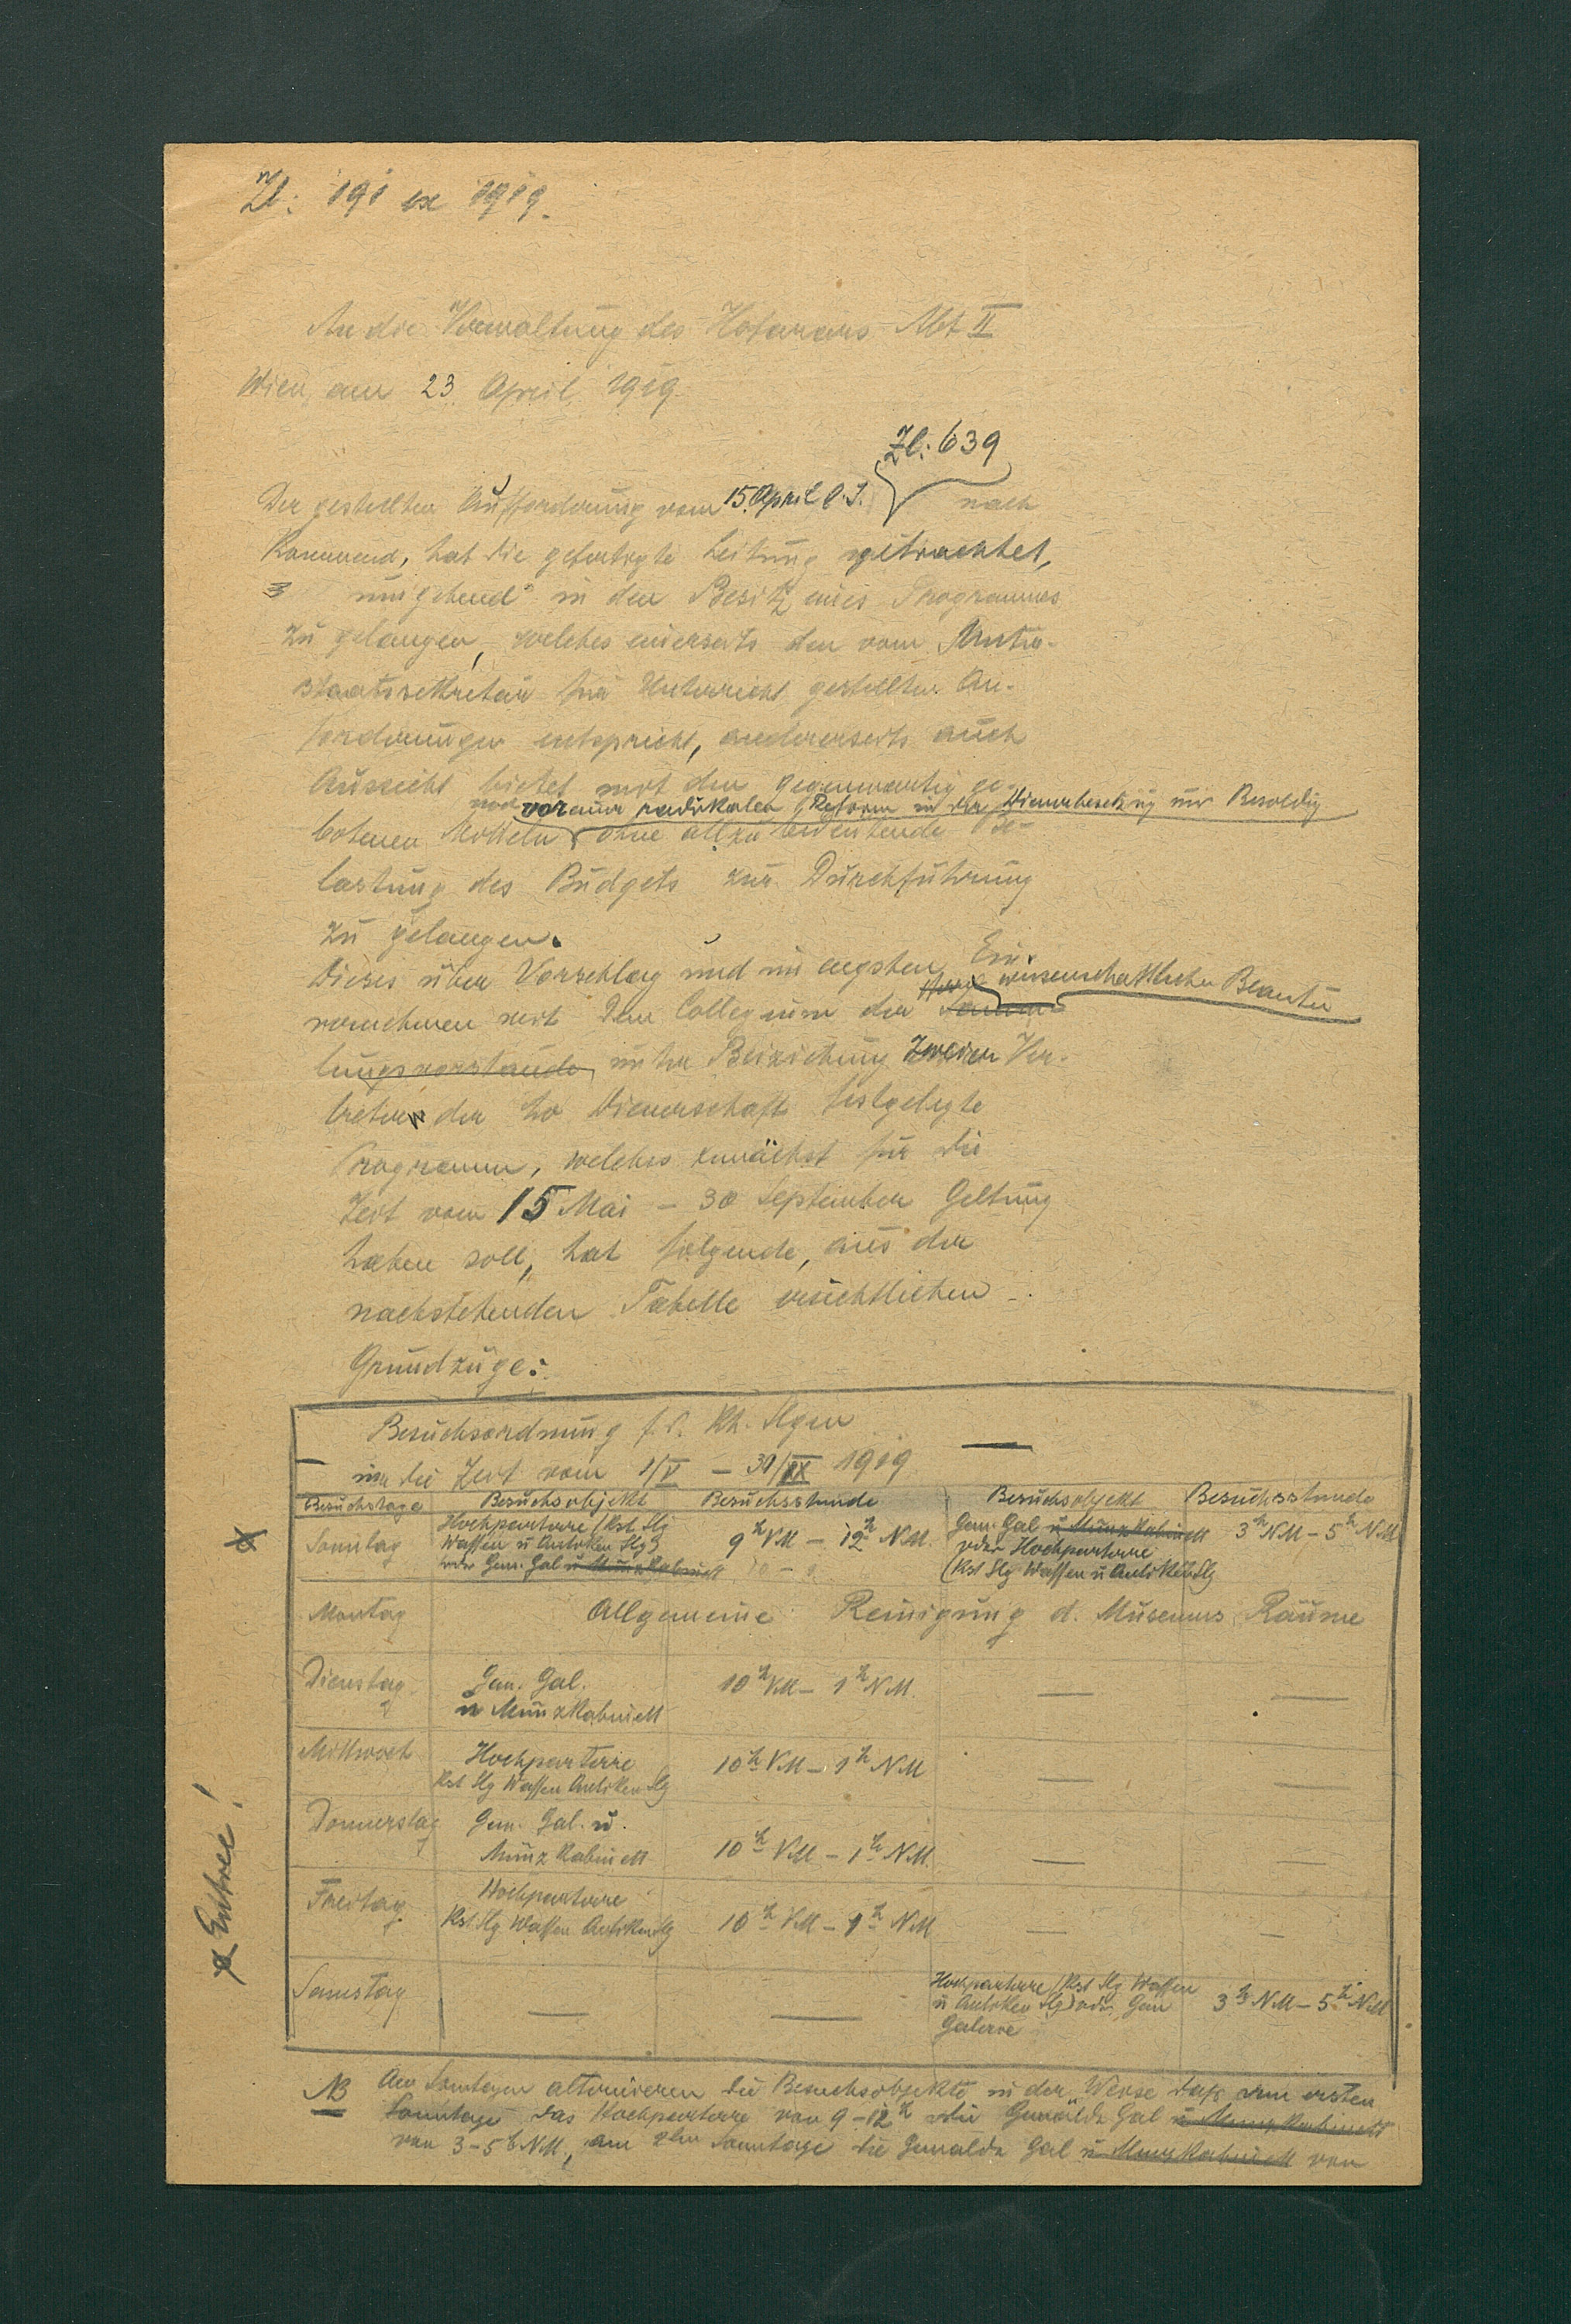 Zl: 191 ex 1919.
An die Verwaltung des Hofärars Abt II
Wien, am 23. April 1919.
Zl: 639
Der gestellten Aufforderung vom 15. April l. J. nach
kommend, hat die gefertigte Leitung getrachtet,
umgehend in den Besitz eines Programmes
zu gelangen, welches einerseits den vom Unter-
staatssekretär für Unterricht gestellten An-
forderungen entspricht, andererseits auch
Aussicht bietet mit den gegenwärtig ge-
vor einer radikalen Reform in der Dienerbesetzung und Besoldg
botenen Mitteln ohne allzu bedeutende Be-
lastung des Budgets zur Durchführung
zu gelangen.
Dieses über Vorschlag und im engsten Ein-
wissenschaftlicher Beamten
vernehmen mit dem Collegium der Samm-
lungsvorstände unter Beiziehung zweier Ver-
treter der ho Dienerschaft festgelegte
Programm, welches zunächst für die
Zeit vom 15 Mai – 30 September Geltung
haben soll, hat folgende, aus der
nachstehenden Tabelle ersichtlichen
Grundzüge:
Besuchsordnung f. d. kh. Slgen
für die Zeit vom 1/V – 30/IX 1919
Besuchstage Besuchsobjekt Besuchsstunde Besuchsobjekt Besuchsstunde
Sonntag Hochparterre (Kst Slg Waffen u Antiken Slg) oder Gem. Gal u Münzkabinett 9h VM – 12h NM. Gem. Gal u Münzkabinett oder Hochparterre (Kst Slg Waffen u Antiken Slg 3h NM – 5h NM
Montag Allgemeine Reinigung d. Museums Räume
Dienstag Gem. Gal. u Münzkabinett 10h VM – 1h NM — —
Mittwoch Hochparterre Kst Slg Waffen Antiken Slg 10h VM – 1h NM — —
Donnerstag Gem. Gal. u. Münzkabinett 10h VM – 1h NM. — —
Freitag Hochparterre Kst. Slg Waffen Antiken Slg 10h VM – 1h NM — —
Samstag — — Hochparterre (Kst Slg Waffen u Antiken Slg) oder Gem Galerie 3h NM – 5h NM
x Entree!
NB An Sonntagen alternieren die Besuchsobjekte in der Weise daß am ersten
Sonntage das Hochparterre von 9–12h die Gemälde Gal u Münzkabinett
von 3–5h NM., am 2ten Sonntage die Gemälde Gal u Münzkabinett von